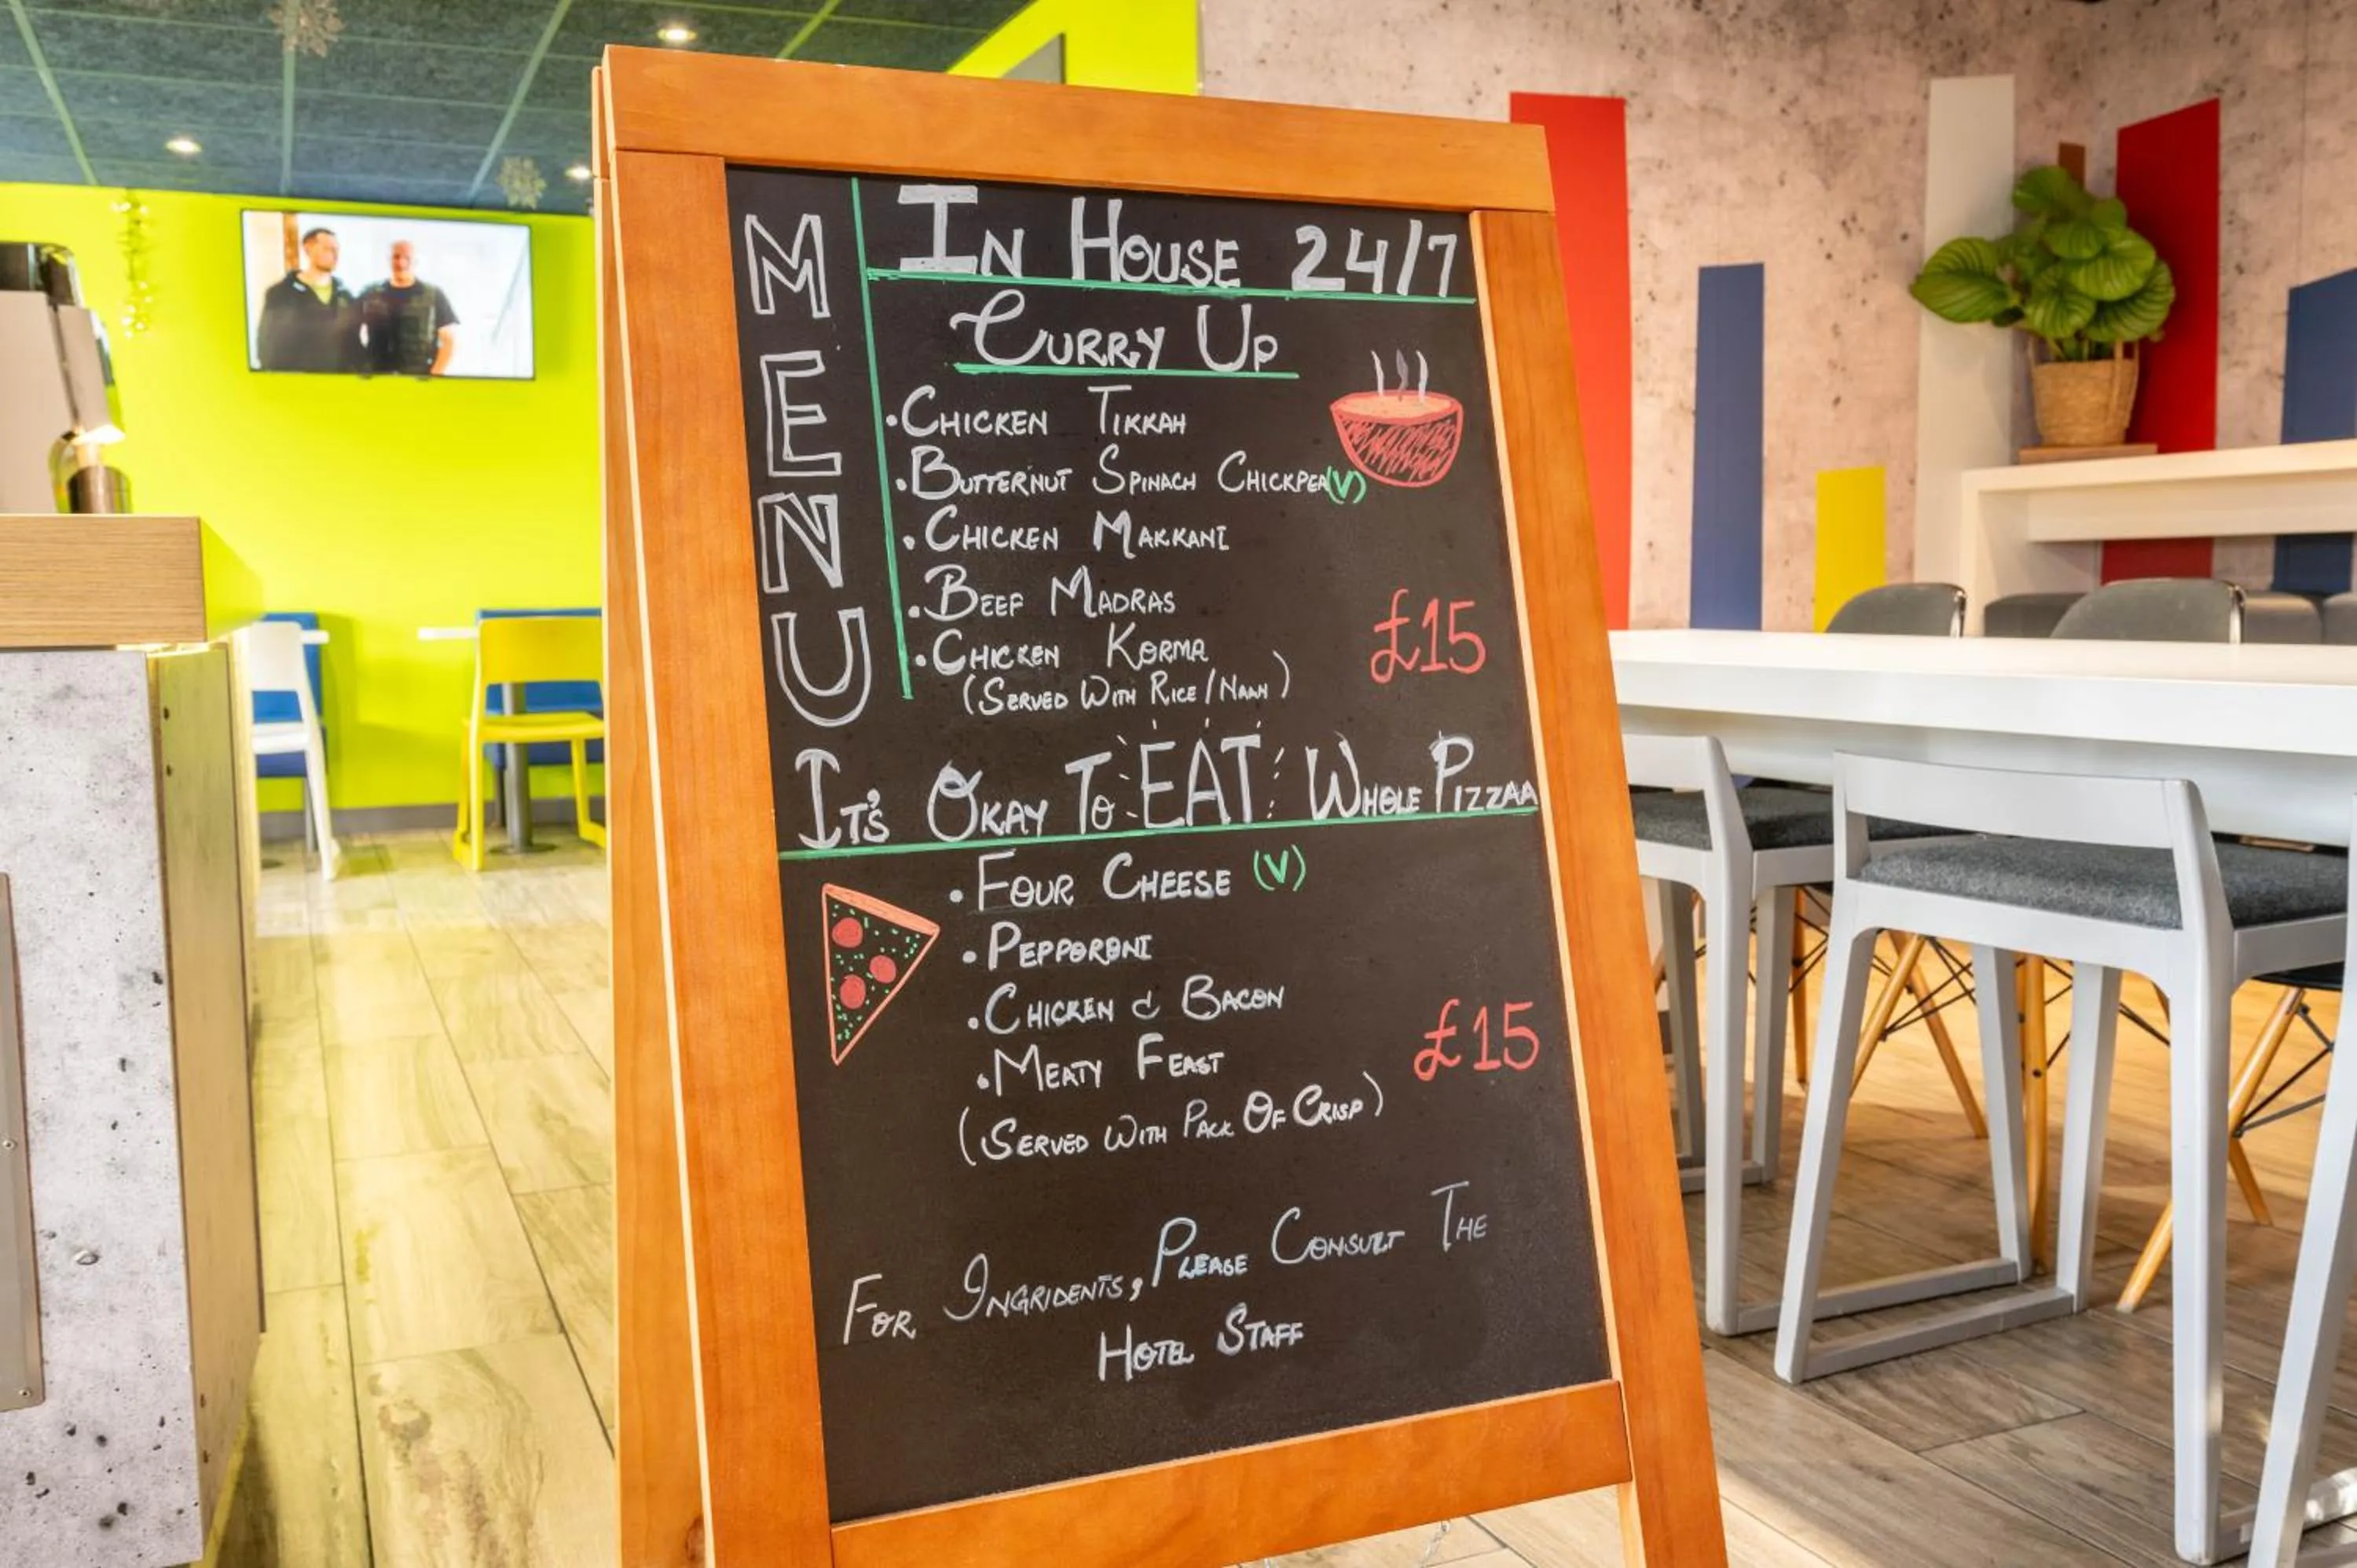 MENU
IN HOUSE 24/7
CURRY UP
•CHICKEN TIKKAH
•BUTTERNUT SPINACH CHICKPEA(V)
•CHICKEN MAKKANI
•BEEF MADRAS
•CHICKEN KORMA
(SERVED WITH RICE/NAAN)
£15
IT'S OKAY TO EAT WHOLE PIZZAA
•FOUR CHEESE (V)
•PEPPORONI
•CHICKEN & BACON
•MEATY FEAST
(SERVED WITH PACK OF CRISP)
£15
FOR INGRIDENTS, PLEASE CONSULT THE
HOTEL STAFF